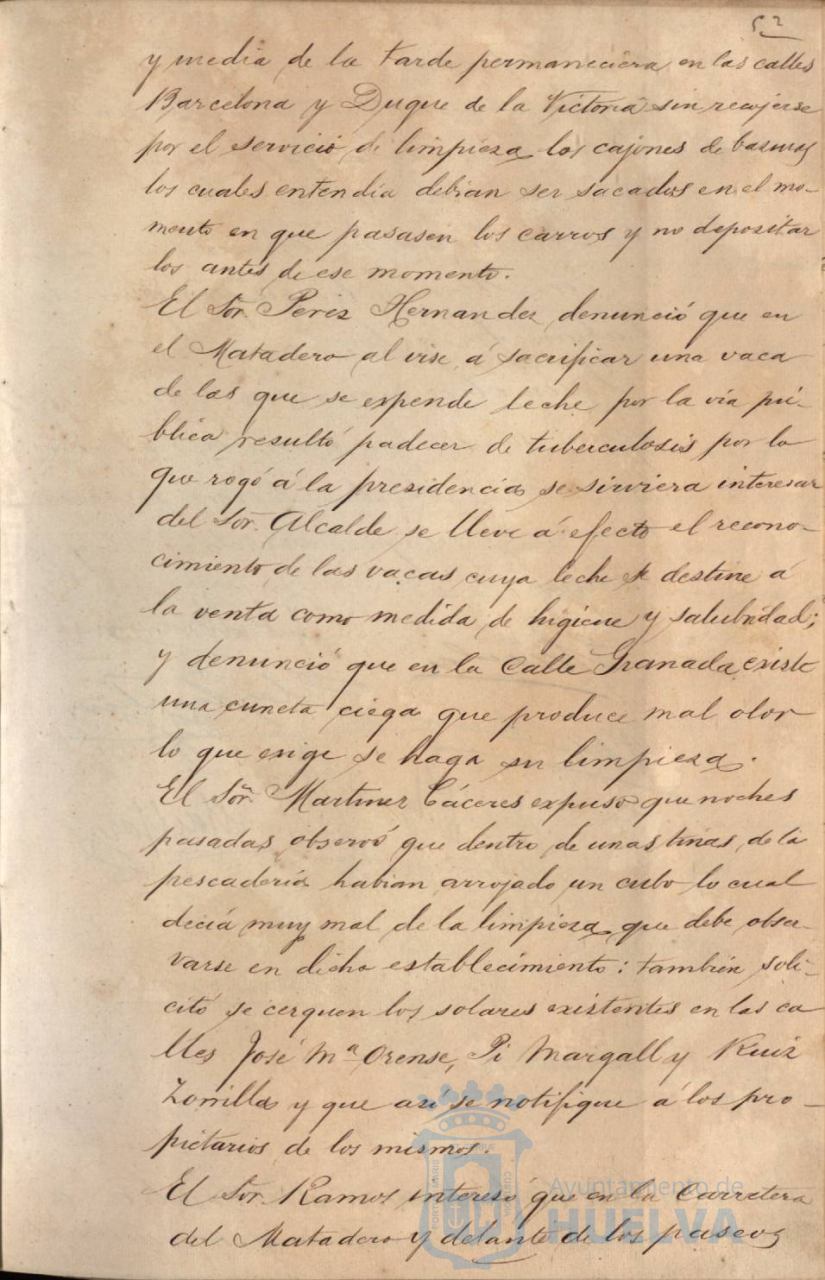 52
y media de la tarde permaneciera en las calles
Barcelona y Duque de la Victoria sin recojerse
por el servicio de limpieza los cajones de basuras
los cuales entendia debian ser sacados en el mo-
mento en que pasasen los carros y no depositar
los antes de ese momento.
El Sor. Perez Hernandez denunció que en
el Matadero al irse á sacrificar una vaca
de las que se expende leche por la via pú-
blica resultó padecer de tuberculosis por lo
que rogó á la presidencia se sirviera interesar
del Sor. Alcalde se lleve á efecto el recono-
cimiento de las vacas cuya leche se destine á
la venta como medida de higiene y salubridad;
y denunció que en la Calle Granada existe
una cuneta ciega que produce mal olor
lo que exige se haga su limpieza.
El Sor. Martinez Cáceres expuso que noches
pasadas observó que dentro de unas tinas de la
pescaderia habian arrojado un cubo lo cual
decia muy mal de la limpieza que debe obser-
varse en dicho establecimiento: también soli-
citó se cerquen los solares existentes en las ca
lles José Mª Orense, Pi Margall y Ruiz
Zorrilla y que asi se notifique á los pro-
pietarios de los mismos.
El Sor. Ramos interesó que en la Carretera
del Matadero y delante de los paseos
Ayuntamiento de
HUELVA